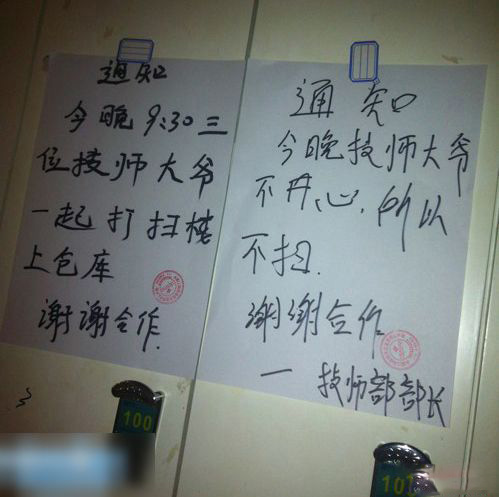 通知
今晚9:30三
位技师大爷
一起打扫楼
上仓库
谢谢合作.
通知
今晚技师大爷
不开心,所以
不扫.
谢谢合作
一 技师部部长
100
101